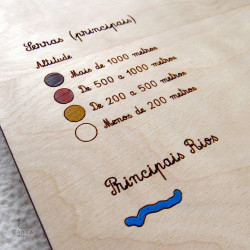 Serras (principais)
Altitude
Mais de 1000 metros
De 500 a 1000 metros
De 200 a 500 metros
Menos de 200 metros
Principais Rios